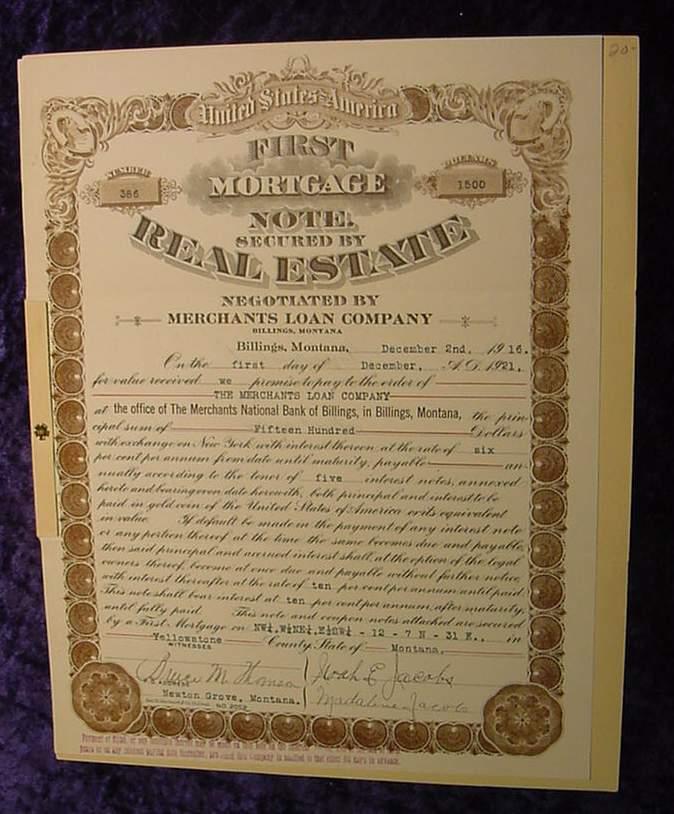 20-
United States of America
FIRST
NUMBER
DOLLARS
386
MORTGAGE
1500
NOTE.
SECURED BY
REAL ESTATE
NEGOTIATED BY
MERCHANTS LOAN COMPANY
BILLINGS, MONTANA
Billings, Montana, December 2nd, 1916.
On the first day of December, A.D. 1921,
for value received we promise to pay to the order of
THE MERCHANTS LOAN COMPANY
at the office of The Merchants National Bank of Billings, in Billings, Montana, the prin-
cipal sum of Fifteen Hundred Dollars
with exchange on New York with interest thereon at the rate of six
per cent per annum from date until maturity, payable an-
nually according to the tenor of five interest notes, annexed
hereto and bearing even date herewith, both principal and interest to be
paid in gold coin of the United States of America or its equivalent
in value. If default be made in the payment of any interest note
or any portion thereof at the time the same becomes due and payable,
then said principal and accrued interest shall, at the option of the legal
owners thereof, become at once due and payable without further notice,
with interest thereafter at the rate of ten per cent per annum until paid.
This note shall bear interest at ten per cent per annum after maturity,
until fully paid. This note and coupon notes attached are secured
by a First Mortgage on - 12 - 7 N - 31 E., in
Yellowstone County State of Montana.
WITNESSES
M Thomson
Noah E Jacobs
Newton Grove, Montana.
Madaline Jacobs
NO. 2052